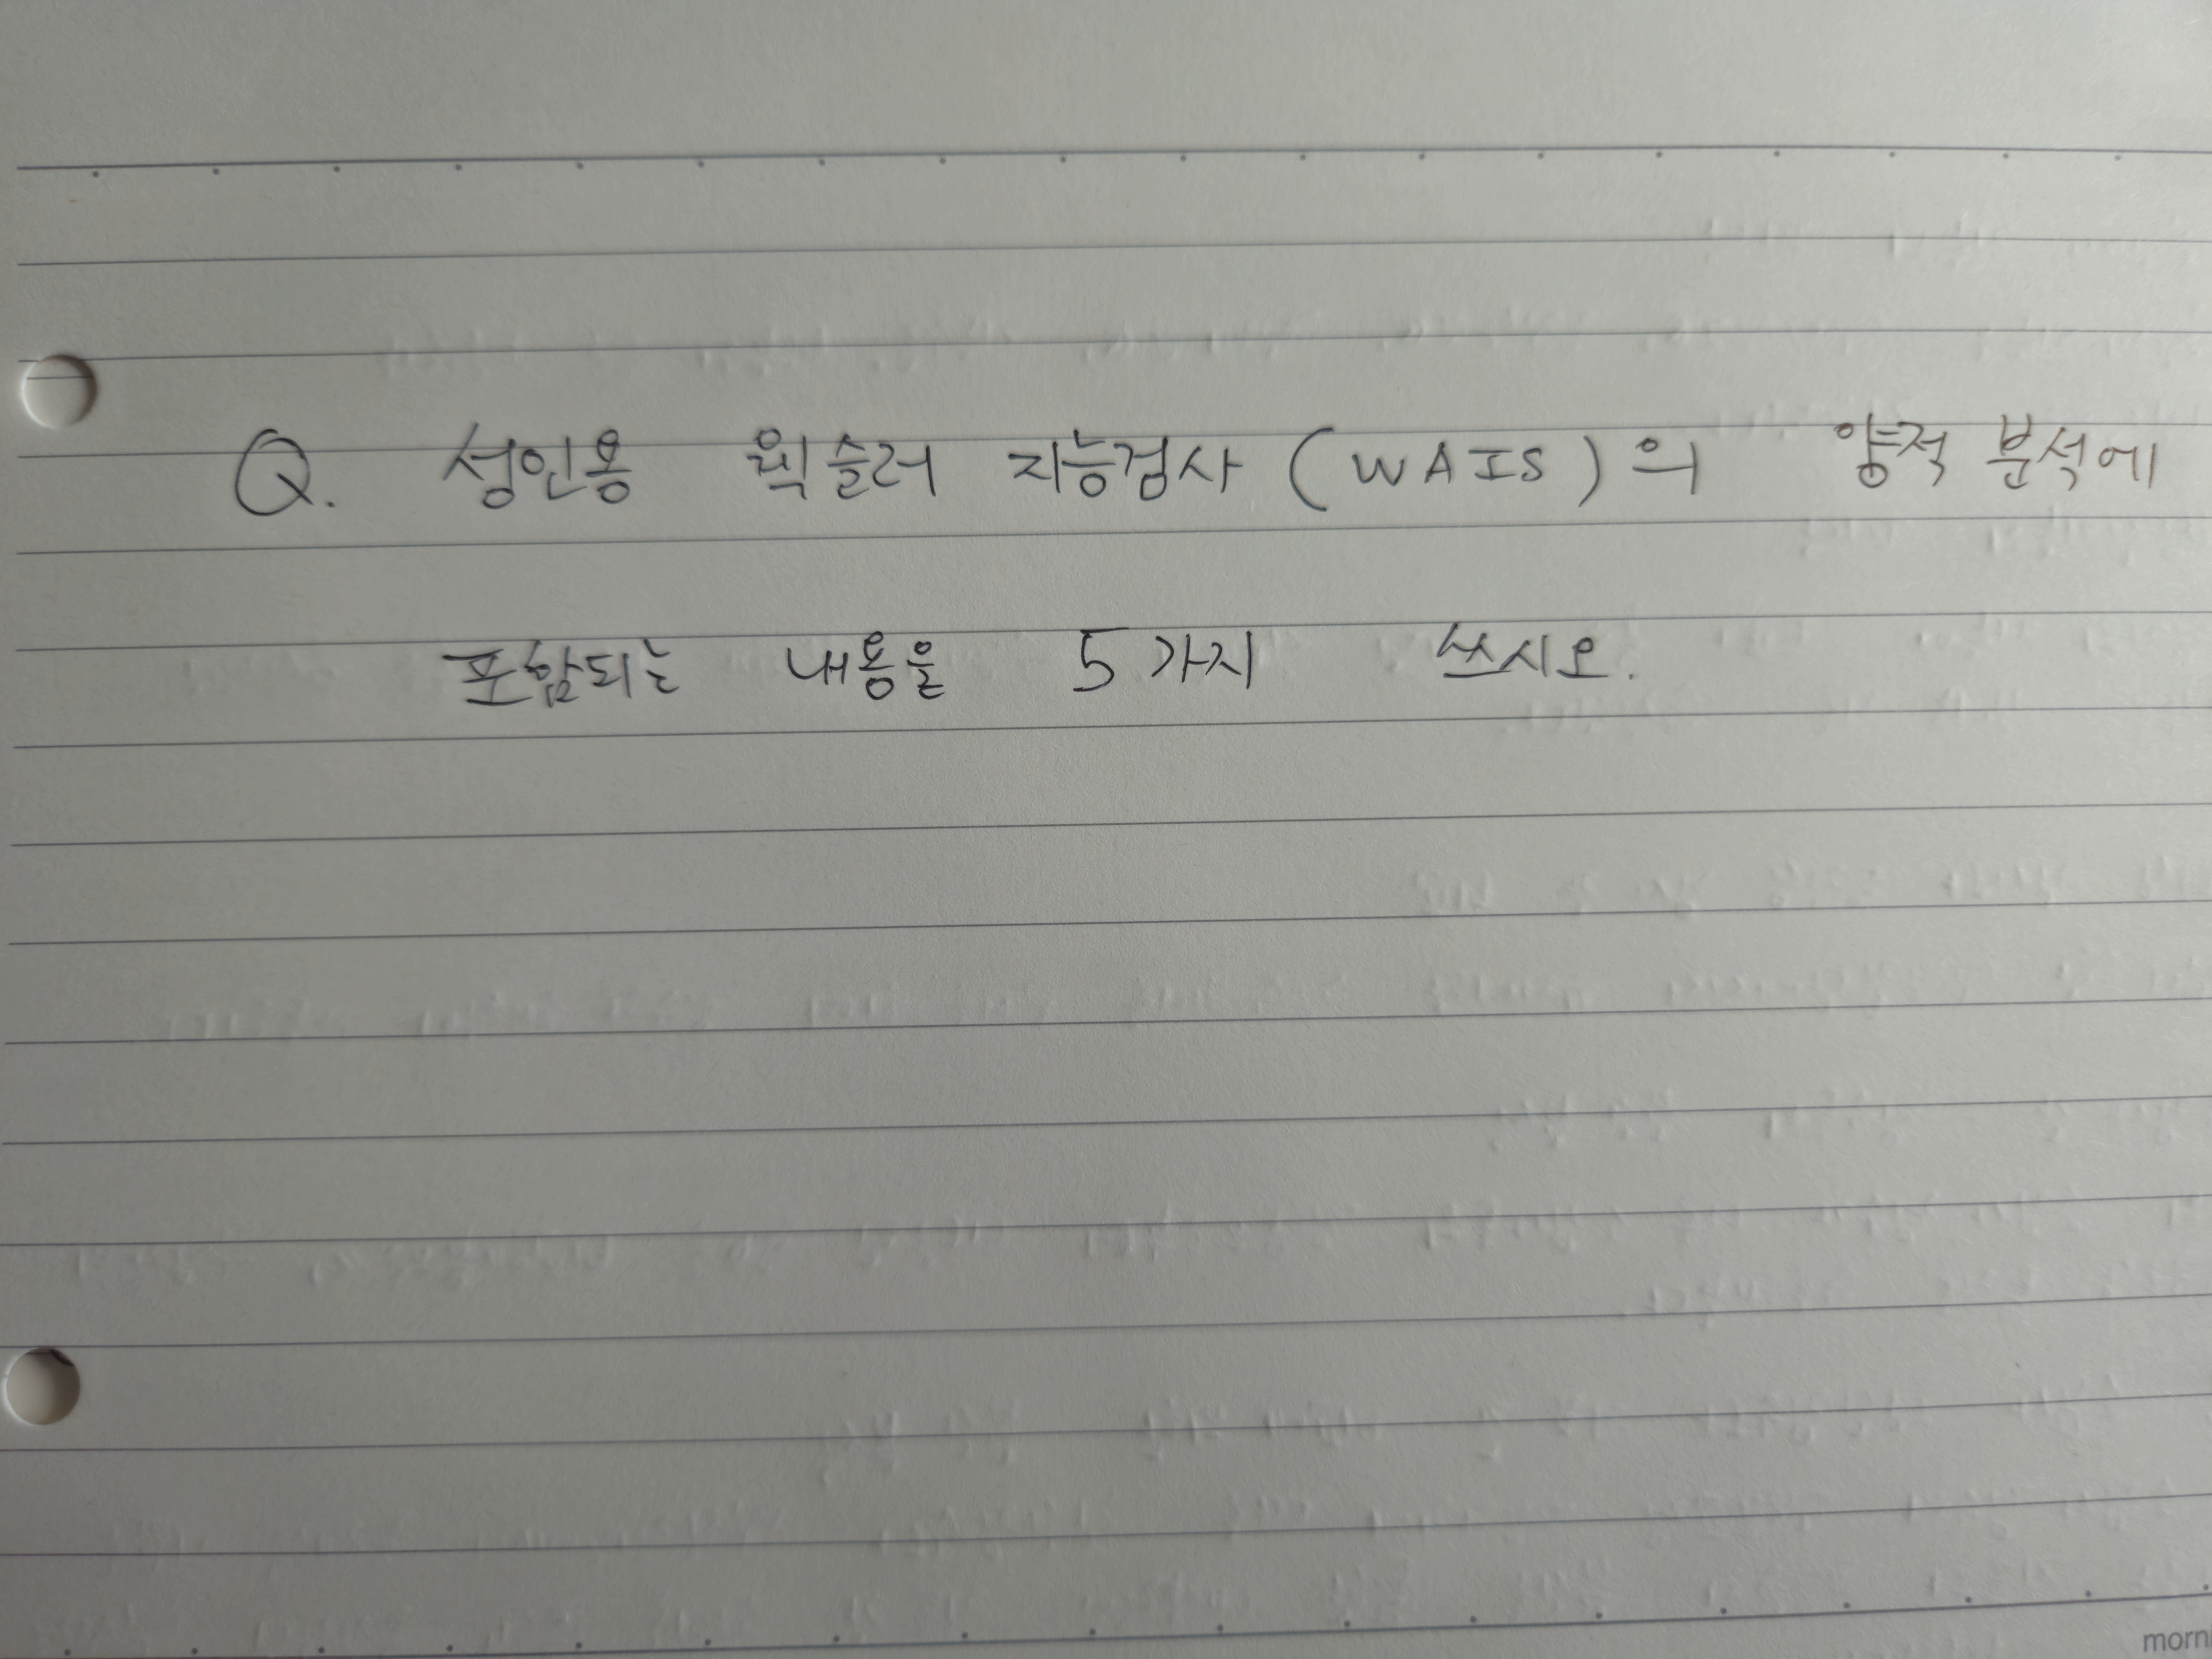 Q. 성인용 웩슬러 지능검사(WAIS)의 양적 분석에
포함되는 내용을 5가지 쓰시오.
morni